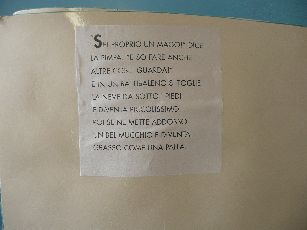 "SEI PROPRIO UN MAGO!" DICE
LA PIMPA. "E SO FARE ANCHE
ALTRE COSE. GUARDA!"
E IN UN BATTIBALENO SI TOGLIE
LA NEVE DA SOTTO I PIEDI
E DIVENTA PICCOLISSIMO
POI SE NE METTE ADDOSSO
UN BEL MUCCHIO E DIVENTA
GRASSO COME UNA PALLA.